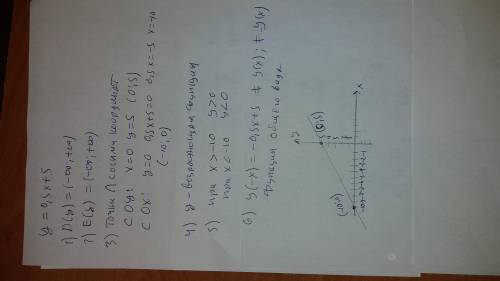 y = 0,5x+5
1) D(y) = (-∞; +∞)
2) E(y) = (-∞; +∞)
3) Точки ∩ с осями координат
С OY: x=0 y=5 (0; 5)
С OX: y=0 0,5x+5=0 0,5x=-5 x=-10
(-10; 0)
4) y - возрастающая функция
5) при x>-10 y>0
при x<-10 y<0
6) y(-x) = -0,5x+5 ≠ y(x); ≠ -y(x)
функция общего вида
(0; 5)
(-10; 0)
x